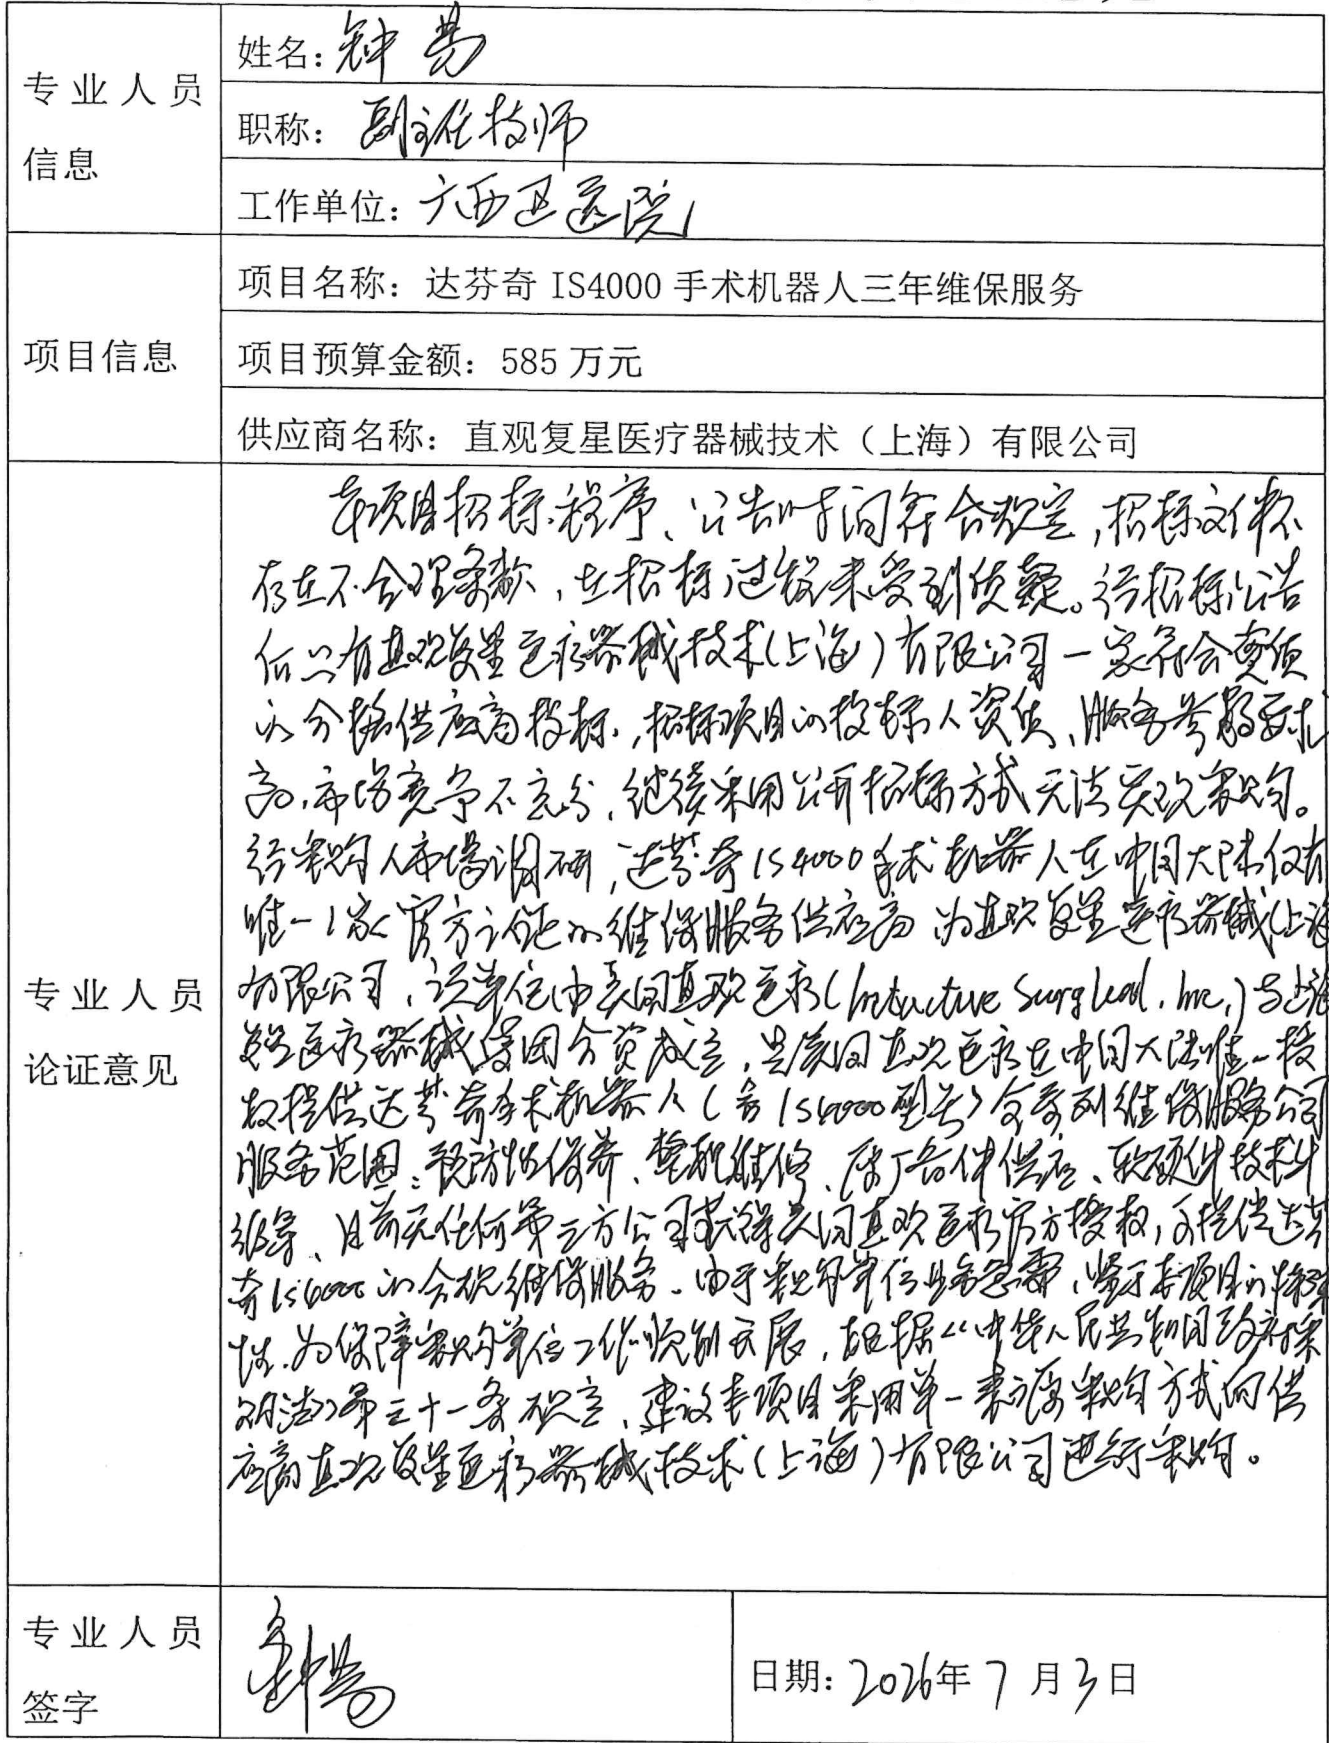 专业人员
信息
姓名：钟昜
职称：副主任技师
工作单位：广西医院
项目信息
项目名称：达芬奇 IS4000 手术机器人三年维保服务
项目预算金额：585 万元
供应商名称：直观复星医疗器械技术（上海）有限公司
专业人员
论证意见
本项目招标程序、公告时间符合规定，招标文件不
存在不合理条款，在招标过程未受到质疑。经招标公告
后只有直观复星医疗器械技术(上海)有限公司一家符合资质
的合格供应商投标，招标项目的投标人资质、服务参数要求
高，市场竞争不充分，继续采用公开招标方式无法实现采购。
经采购人市场调研，达芬奇IS4000手术机器人在中国大陆仅有
唯一1家官方认证的维保服务供应商为直观复星医疗器械(上海
有限公司，该单位由美国直观医疗(Intuctive Surglcal, Inc,)与上海
复星医疗器械集团合资成立，是美国直观医疗在中国大陆唯一授
权提供达芬奇手术机器人(含IS4000型号)全系列维保服务公司
服务范围：预防性保养、整机维修、原厂备件供应、软硬件技术升
级等、目前无任何第三方公司获得美国直观医疗官方授权，可提供达芬
奇IS4000的合规维保服务。由于采购单位业务急需，鉴于本项目的特殊
性，为保障采购单位工作顺利开展，根据《中华人民共和国政府采
购法》第三十一条规定，建议本项目采用单一来源采购方式向供
应商直观复星医疗器械技术(上海)有限公司进行采购。
专业人员
签字
钟昜
日期：2026年7月3日